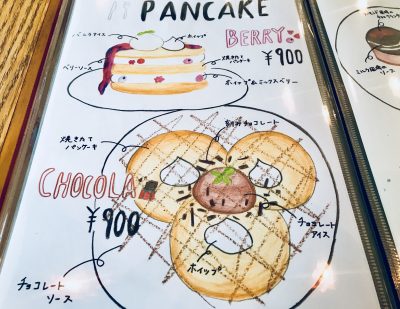 PANCAKE
バニラアイス
ホイップ
BERRY
¥900
ベリーソース
焼きたて
パンケーキ
ホイップ&ミックスベリー
焼きたて
パンケーキ
刻みチョコレート
CHOCOLA
¥900
チョコレート
アイス
ホイップ
チョコレート
ソース